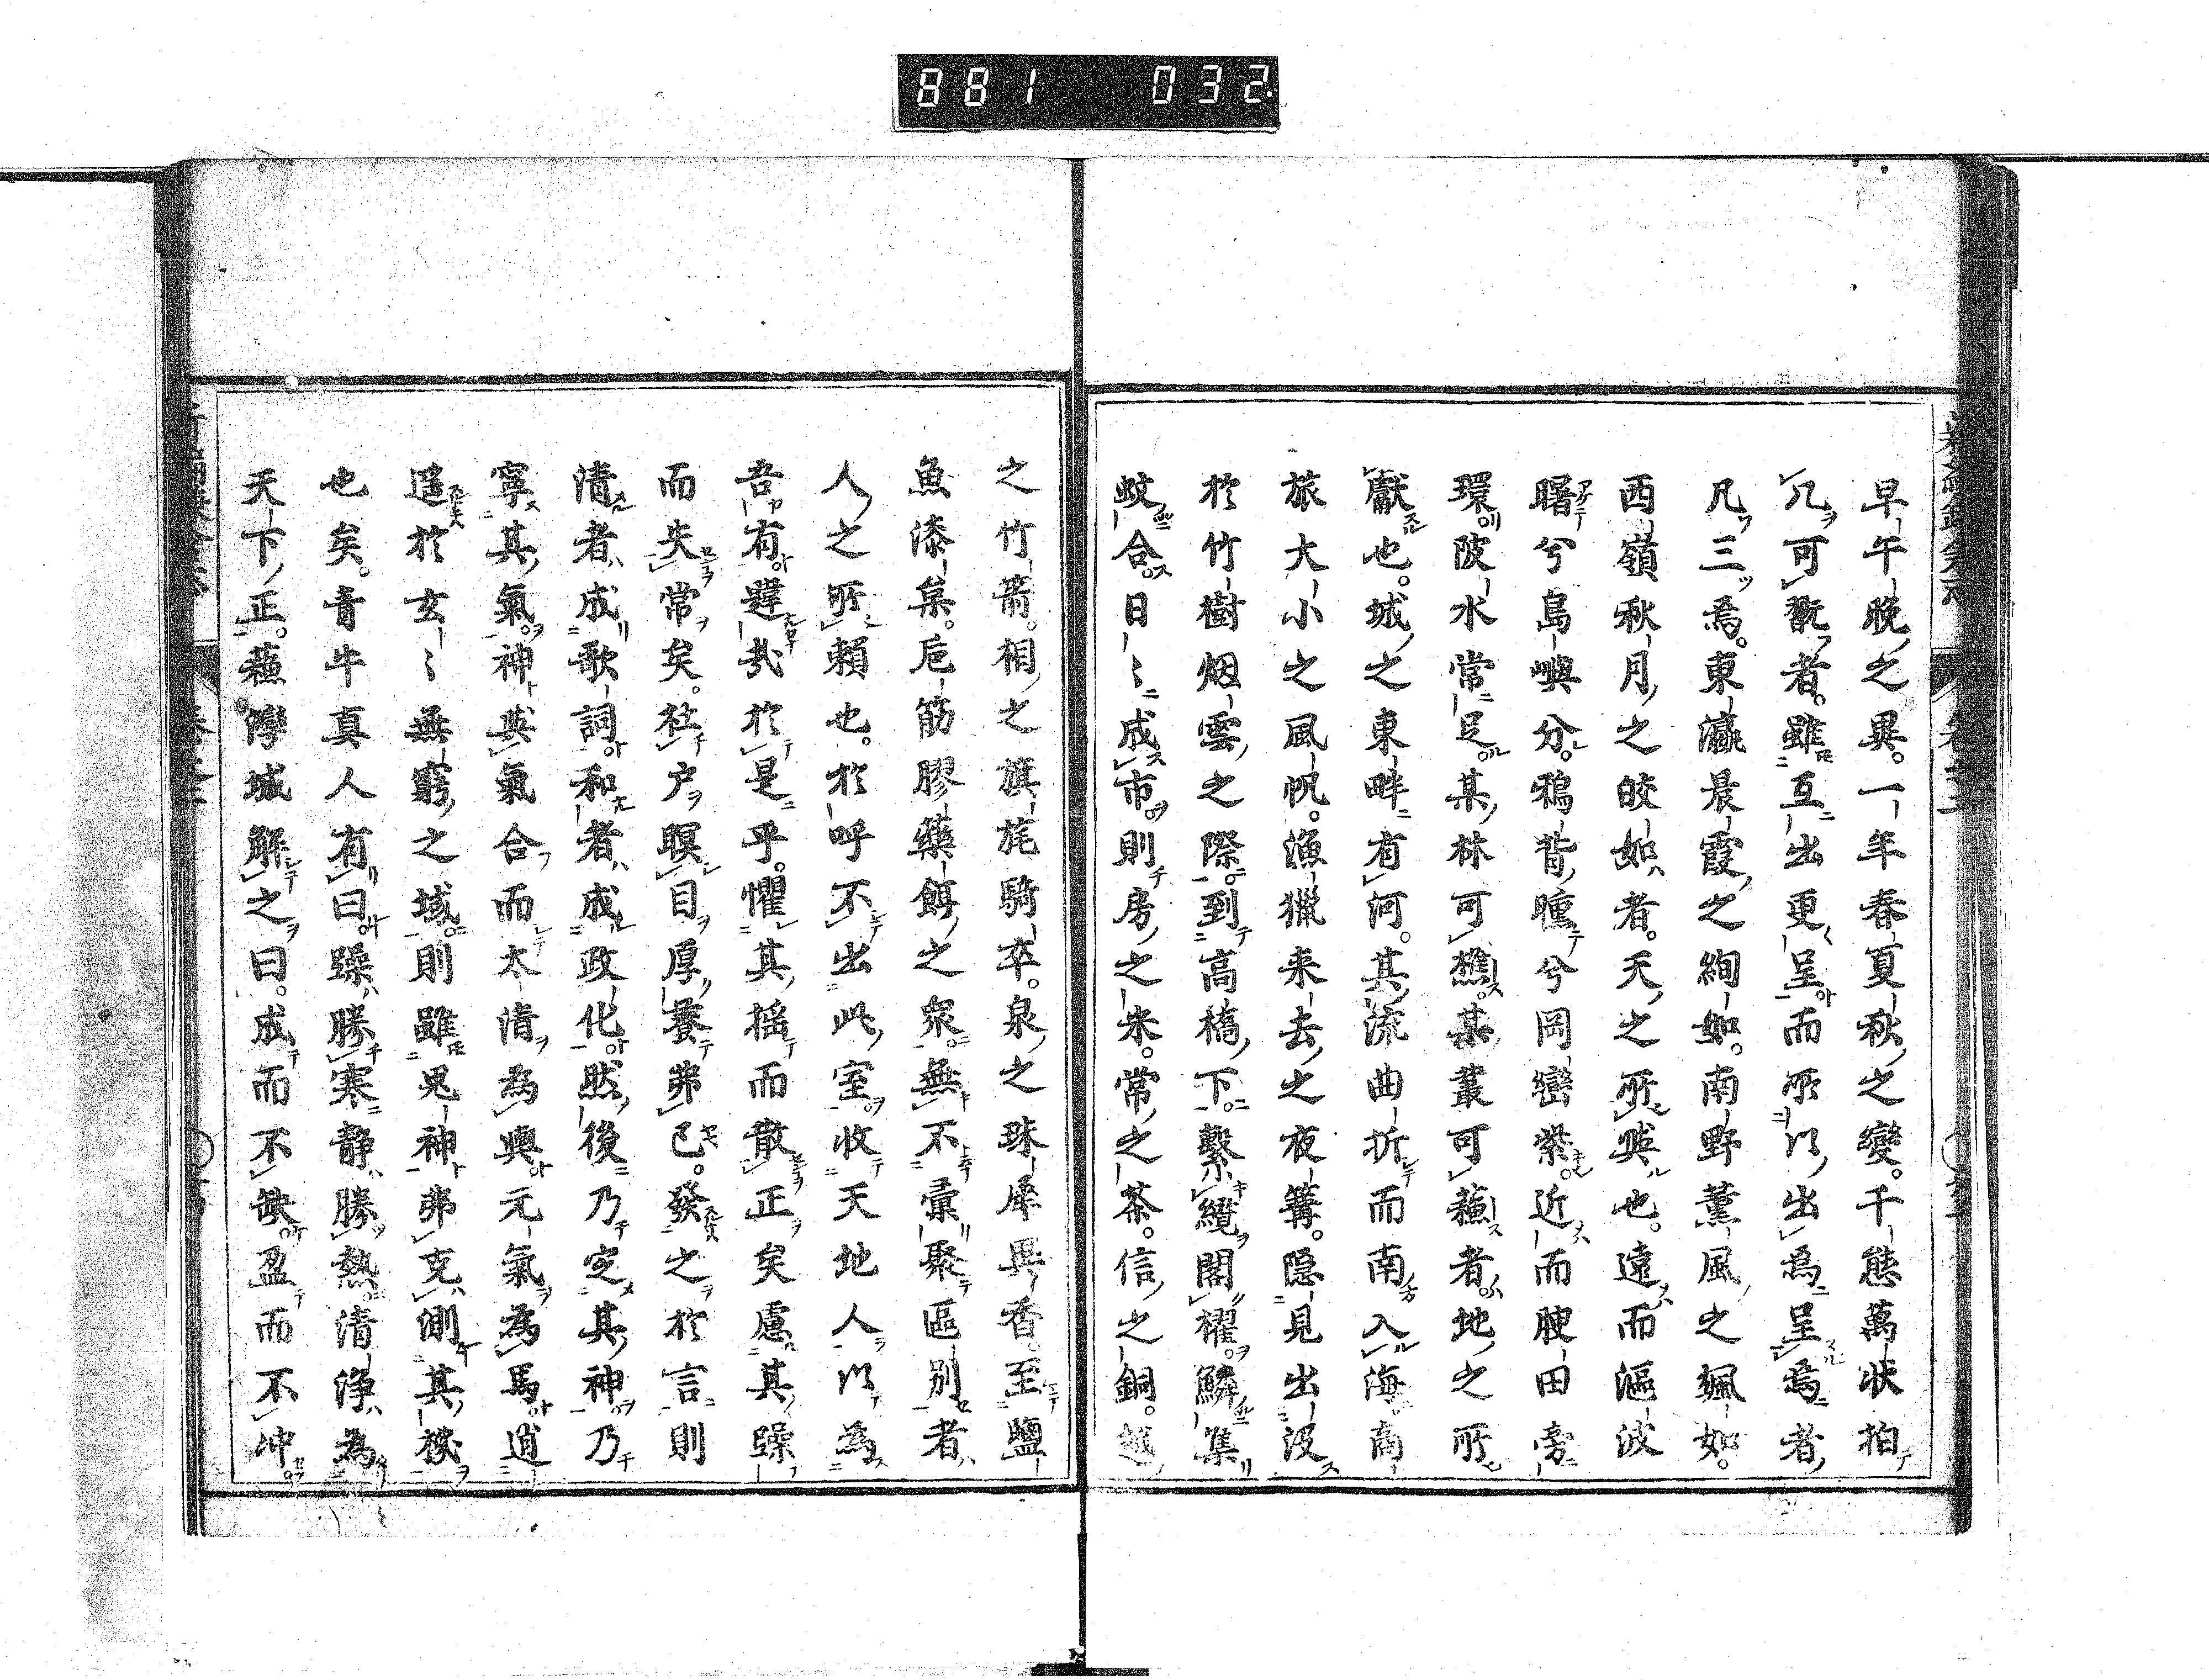 881 032
早午晩之異。一年春夏秋之變。千態萬狀拍
几可翫者。雖互出更呈而所以出為呈焉者
凡三焉。東瀛晨霞之絢如。南野薰風之颯如。
西嶺秋月之皎如者。天之所與也。遠而漚波
曙兮島嶼分。鴉背曈兮岡巒紫。近而腴田旁
環。陂水常足。某林可樵。某叢可蘓者。地之所
獻也。城之東畔有河。其流曲折而南入海。商
旅大小之風帆。漁獵来去之夜篝。隠見出没
於竹樹烟雲之際。到高橋下。繋纜閣櫂。鱗集
蚊合。日〻成市。則房之米。常之茶。信之銅。越
之竹箭。相之旗旄騎卒。泉之珠犀異香。至鹽
魚漆枲。巵筋膠藥餌之衆。無不彙聚區別者
人之所賴也。於呼不出此室。收天地人以為
吾有。韙哉於是乎。懼其揺而散正矣慮其躁
而失常矣。枉户瞑目。厚養弗已。發之於言則
清者成歌詞。和者成政化。然後乃定其神。乃
寧其氣。神與氣合而太清為輿元氣為馬。逍
遥於玄〻無窮之域。則雖鬼神弗克測其機
也矣。青牛真人有曰。躁勝寒静勝熱。清浄為
天下正。蘓灣城解之曰。成而不缺。盈而不冲。